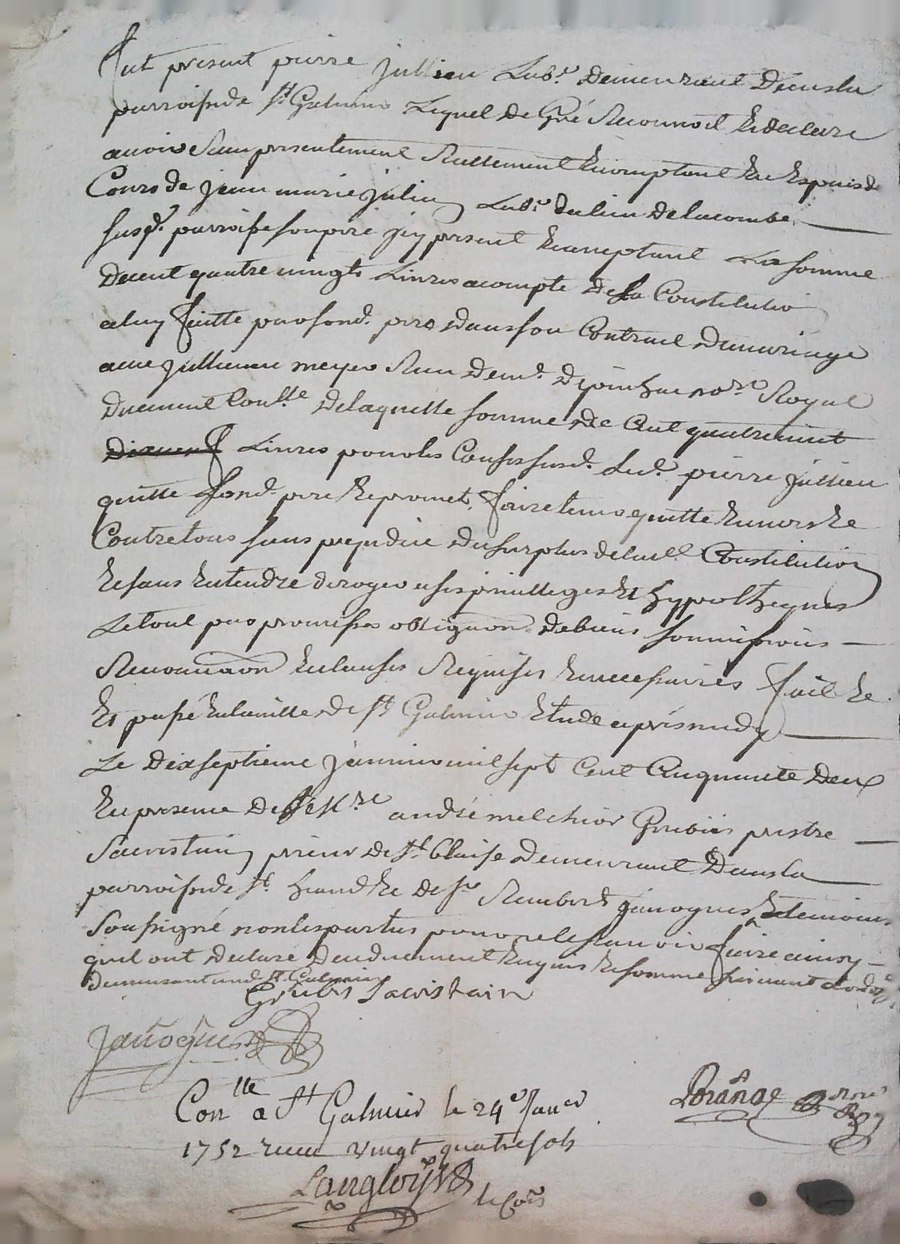 Fut present pierre jullien Labr. demeurant Dans la
parroisse de st Galmier Lequel de Gré Reconnoit Et declare
avoir Reu presentement Reellement Et comptant En Espesses de
Cours de jean marie julien Labr. du lieu de lacombe
susd. parroisse son pere jcy present Et acceptant La somme
De cent quatre vingts Livres acompte de la Constitution
a luy faitte par sond. pere dans son Contrat de mariage
avec jullienne meyer Reu de me. Dejoinhac nore Royal
Duement Conlle De laquelle somme de Cent quatre vint
Livres pour les Causes susd. Led. pierre jullien
quitte sond. pere Et promet faire tenir quitte Envers Et
Contre tous sans prejudice du surplus de lad. Constitution
Et sans Entendre deroger a ses privilleges Et hypotheques
Le tout par promesses obligaon. de biens soumissions
Renonciaon Et clauses Requises Et necessaires fait Et
Et passé En la ville de st Galmier Etude apres midy
Le dix septieme janvier mil sept Cent Cinquante Deux
En presence De Me andré melchior Grubis prestre
Sacristain prieur de st. blaise Demeurant Dans la
parroisse de st. heand Et de sr Rembert janogues Et temoins
Soussigné non les parties pour ne le scavoir faire ainsy
quil ont declaré de ce duement Enquis Et sommé suivant Lord.
demeurant aud. st. Galmier
Grubis Sacristain
Janogues
Conlle a St Galmier le 24e Janer
1752 receu vingt quatre sols
Langlois
le Cois